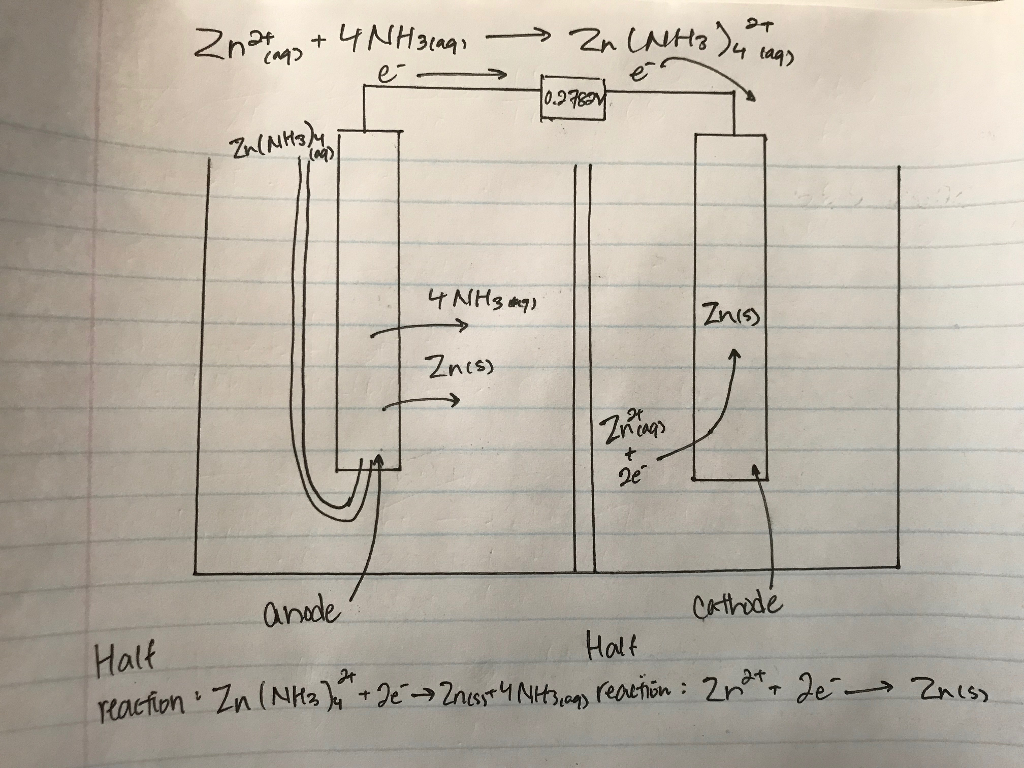 Zn²⁺(aq) + 4NH₃(aq) ⟶ Zn(NH₃)₄²⁺(aq)
e⁻ ⟶
0.2782V
e⁻
Zn(NH₃)₄(aq)
4NH₃(aq)
Zn(s)
Zn(s)
Zn²⁺(aq)
+
2e⁻
anode
cathode
Half
reaction: Zn(NH₃)₄²⁺ + 2e⁻ → Zn(s)+4NH₃(aq)
Half
reaction: Zn²⁺ + 2e⁻ ⟶ Zn(s)